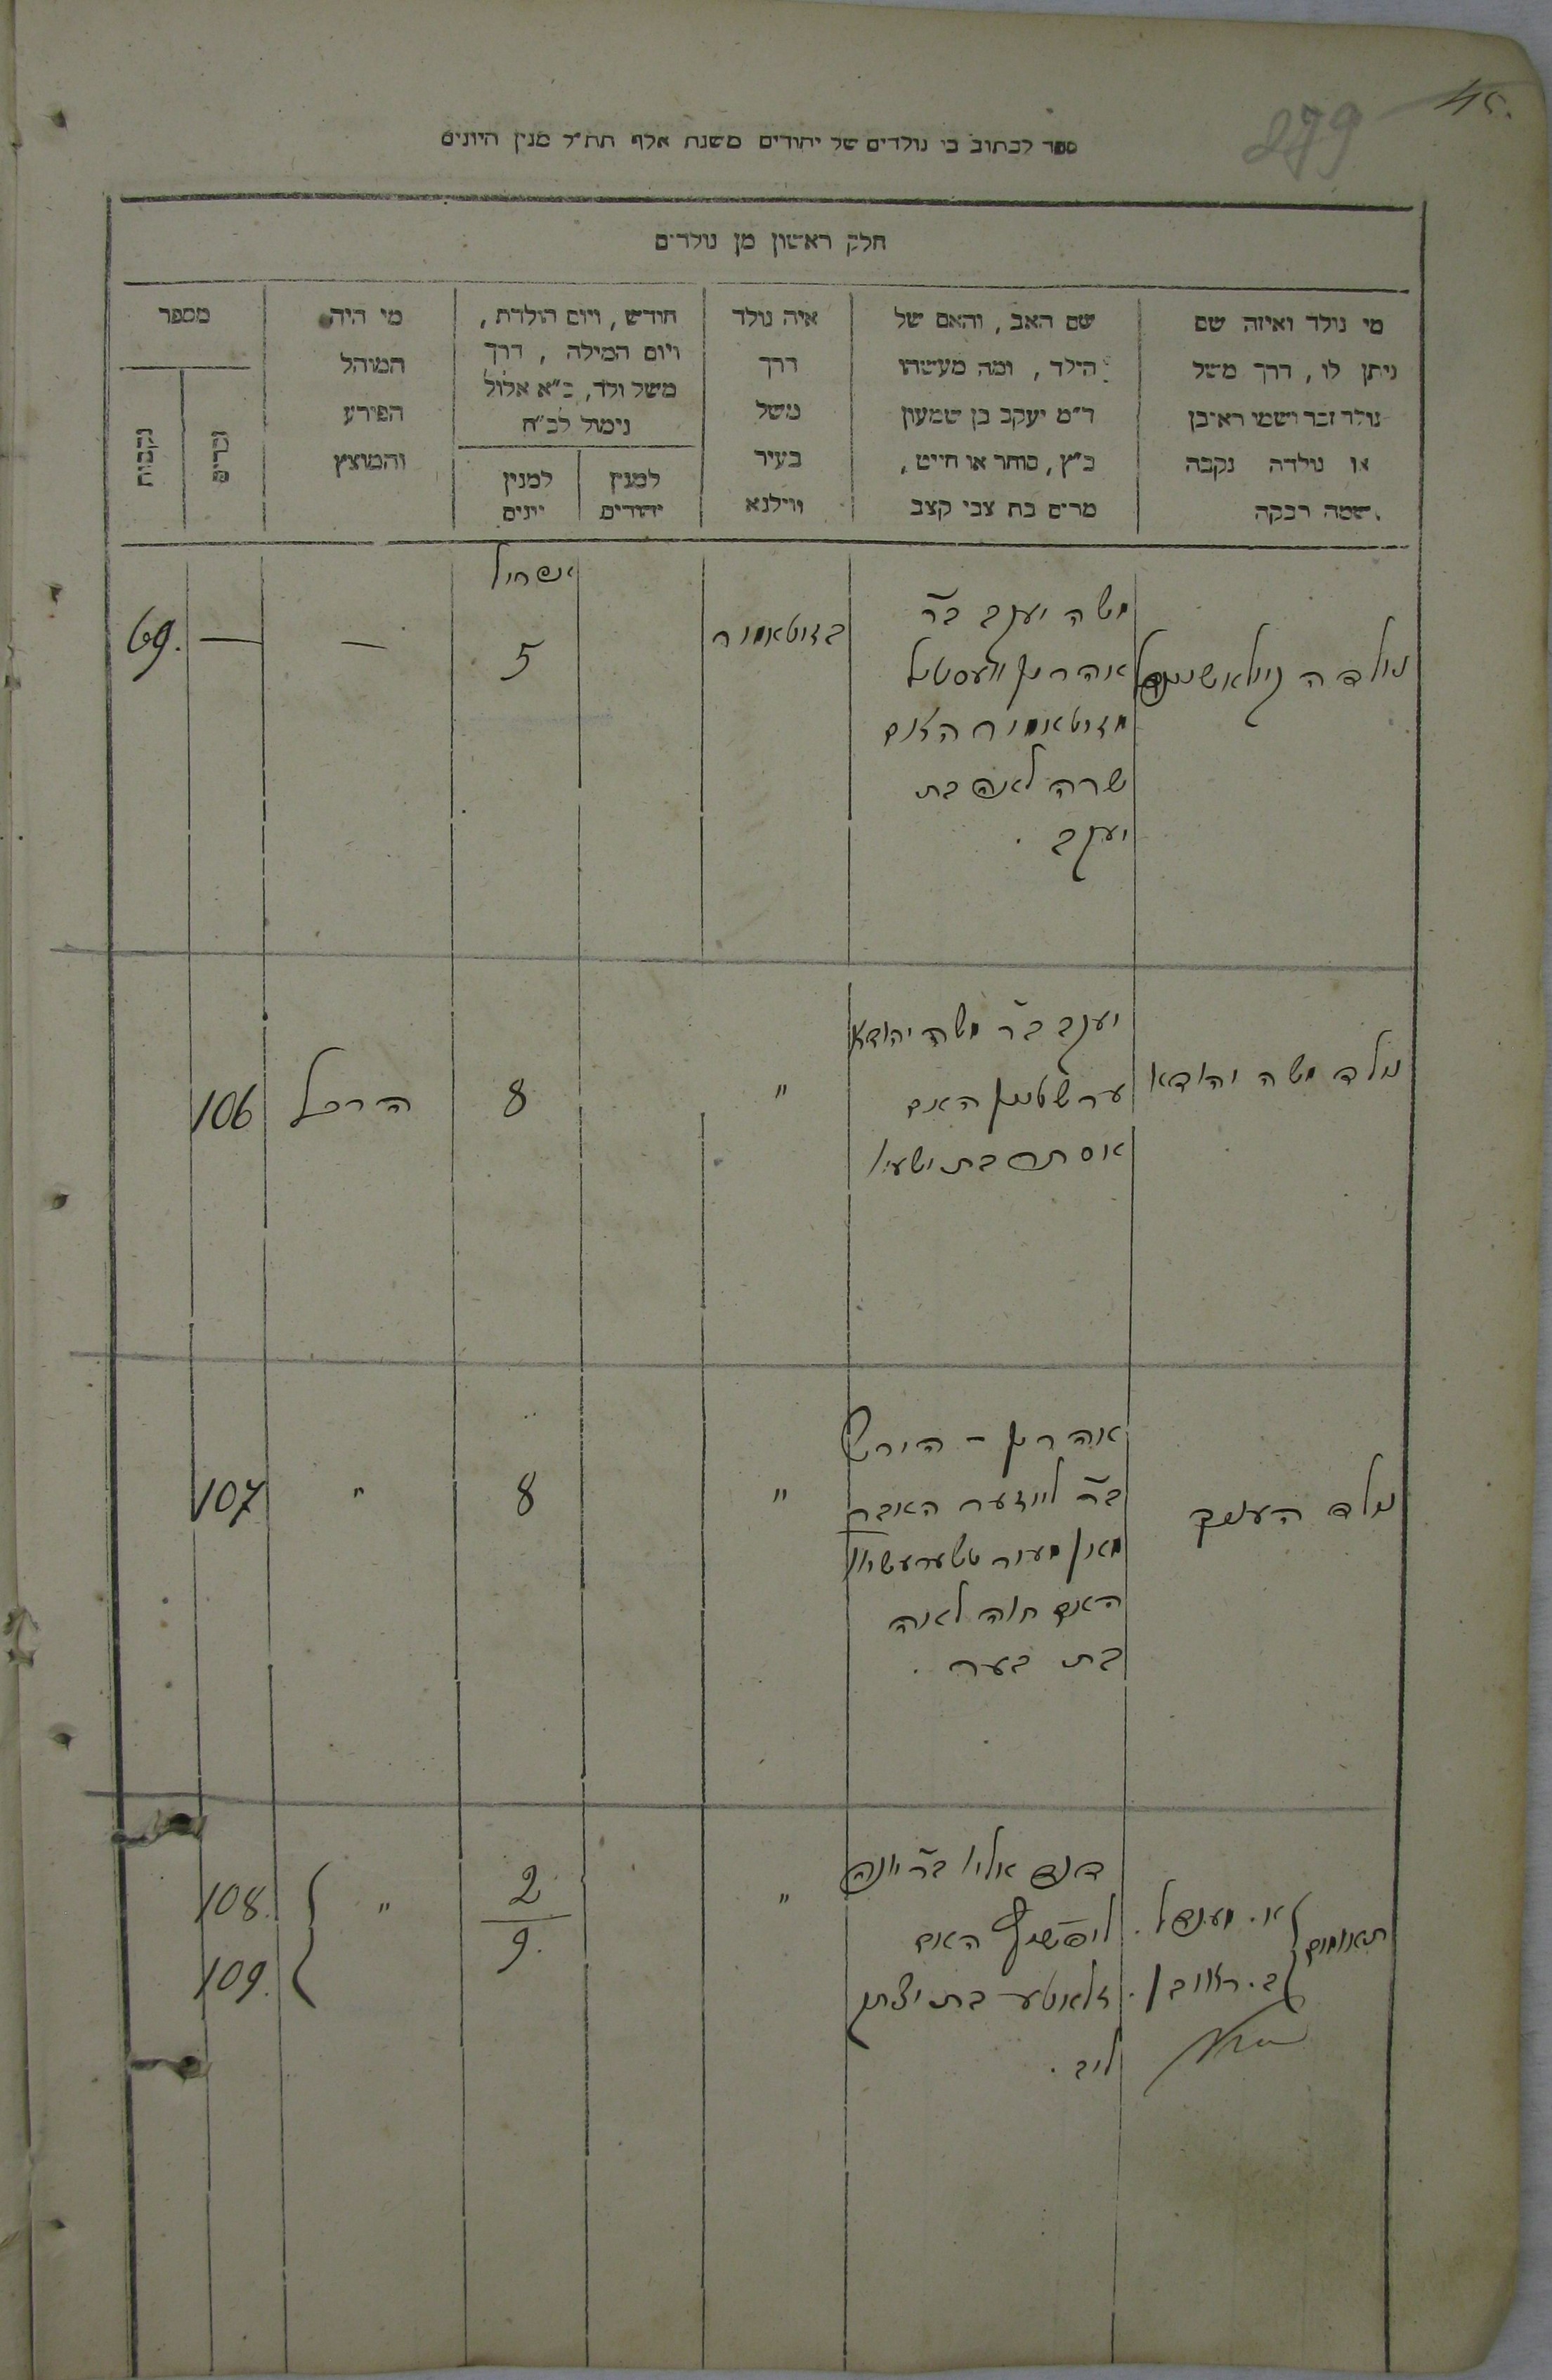 45.
279
ספר לכתוב בו נולדים של יהודים משנת אלף תת״ל מנין היונים
חלק ראשון מן נולדים
מי נולד ואיזה שם
ניתן לו, דרך משל
נולד זכר ושמו ראיבן
או נולדה נקבה
שמה רבקה
שם האב, והאם של
הילד, ומה מעשהו
ד״מ יעקב בן שמעון
כ״ץ, סוחר או חייט,
מרים בת צבי קצב
איה נולד
דרך
משל
בעיר
ווילנא
חודש, ויום הולדת,
ויום המילה, דרך
משל ולד, כ״א אלול
נימול לכ״ח
למנין
יהודים
למנין
יונים
מי היה
המוהל
הפורע
והמוצץ
מספר
זכרים
נקבות
נולדה
משה יעקב בר
אהרן
האם
שרה לאה בת
יעקב .
בזיטאמיר
אפריל
5
—
—
69.
נולד משה יהודא
יעקב בר משה יהודא
האם
אסתר בת ישעי׳
"
8
106
נולד העניך
אהרן - הירש
בר לייזער
האם חוה לאה
בת בער .
"
8
"
107
תאומים
א. מענדל .
ב. ראובן .
אלי׳ בר יונה
ליפשיץ האם
זלאטע בת יצחק
ליב .
"
2
9.
"
108.
109.